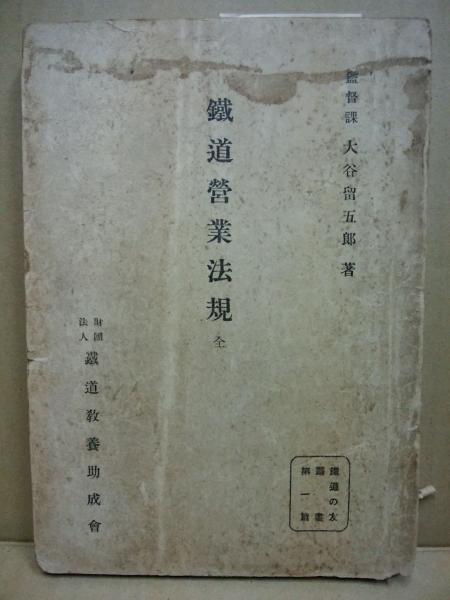 監督課 大谷留五郎 著
鐵道營業法規 全
財團
法人
鐵道教養助成會
鐵道の友
叢書
第一篇